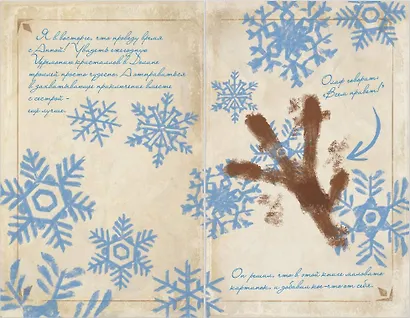 Я в восторге, что проведу время
с Анной! Увидеть ежегодную
церемонию кристаллов в Долине
троллей просто чудесно. А отправиться
в захватывающее приключение вместе
с сестрой –
ещё лучше.
Олаф говорит:
«Всем привет!»
Он решил, что в этой книге маловато
картинок, и добавил кое-что от себя.